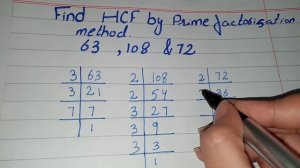 Find HCF by Prime factorisation
method.
63 , 108 & 72
3 63 2 108 2 72
3 21 2 54 36
7 7 3 27
1 3 9
3 3
1